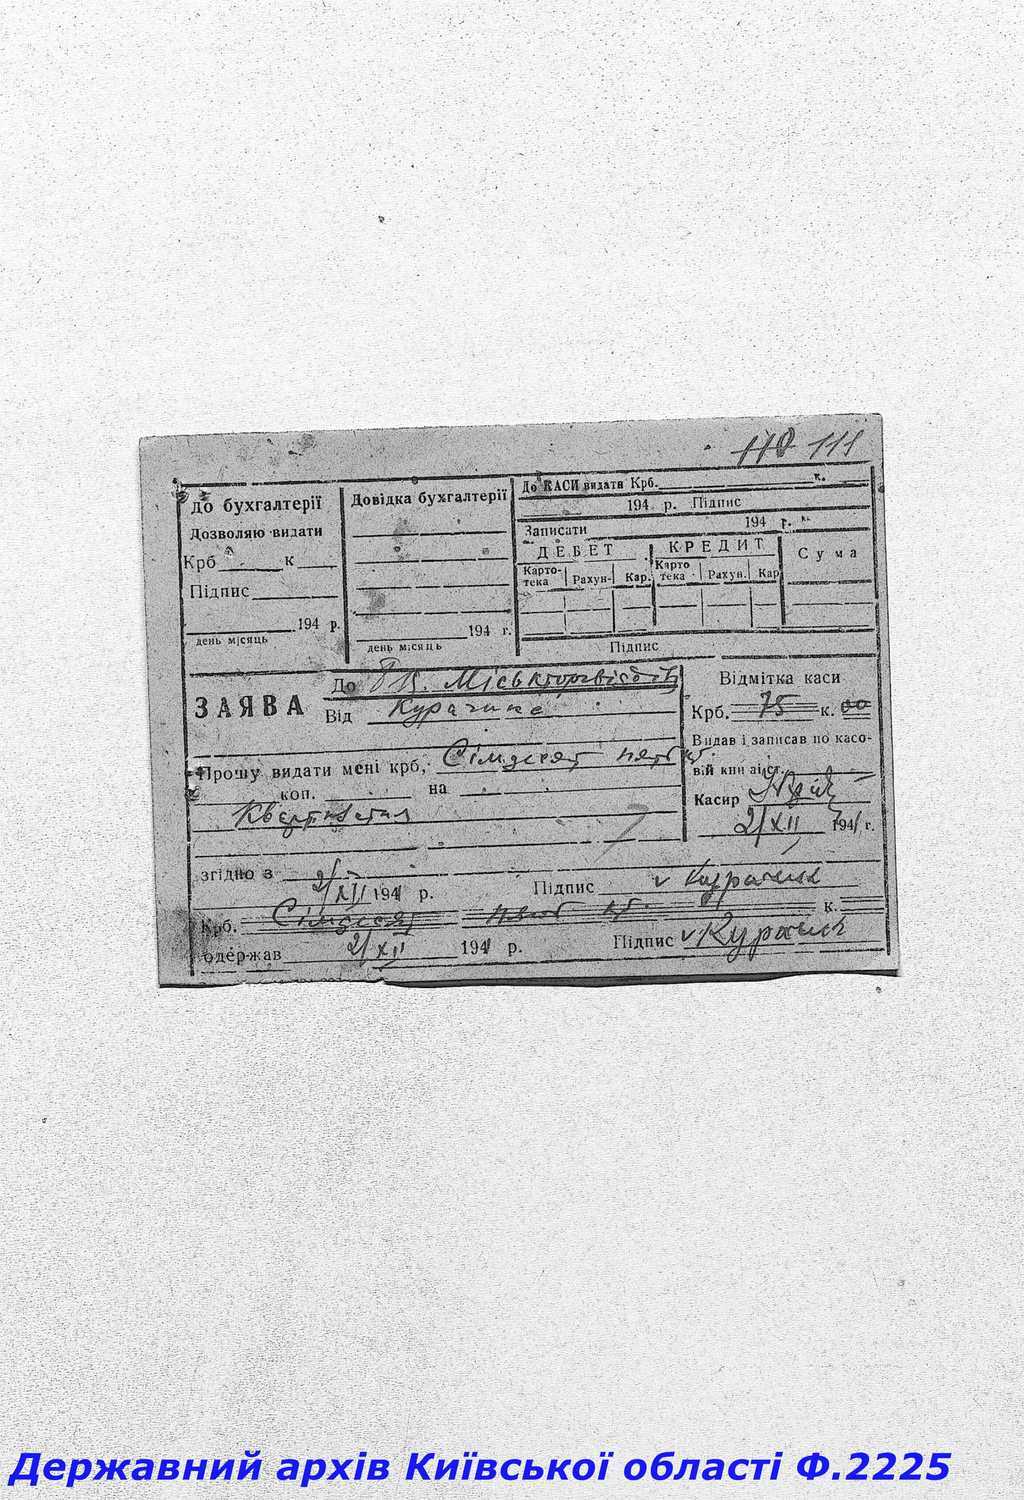 110 111
До бухгалтерії
Дозволяю видати
Крб к
Підпис
194 р.
день місяць
Довідка бухгалтерії
194 г.
день місяць
До КАСИ видати Крб. к.
194 р. Підпис
Записати 194 г.
ДЕБЕТ КРЕДИТ Сума
Карто-тека Рахун- Кар. Карто тека Рахун. Кар
Підпис
ЗАЯВА
До Міськторгвідділ
Від Курачина
Прошу видати мені крб, Сімдесят пять
коп. на
згідно з
2/XII 1941 р. Підпис Курачин
Крб. Сімдесят пять к.
одержав 2/XII 1941 р. Підпис Курачин
Відмітка каси
Крб. 75 к. 00
Видав і записав по касо-
вій книзі ст.
Касир
2/XII 1941 г.
Державний архів Київської області Ф.2225